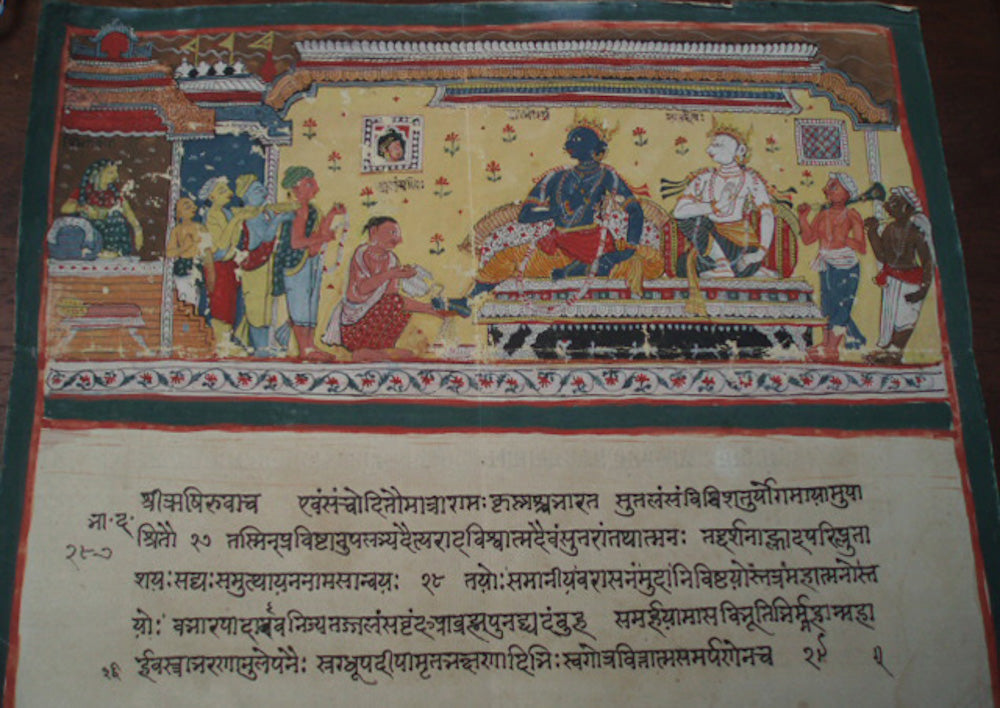 श्रीऋषिरुवाच एवंसंचोदितौमात्रारामःकृष्णश्चभारत सुतलंसंविविशतुर्योगमायामुपा
भा॰द॰
श्रितौ २७ तस्मिन्प्रविष्टावुपलभ्यदैत्यराट्विश्वात्मदैवंसुतरांतथात्मनः तद्दर्शनाह्लादपरिप्लुता
शयःसद्यःसमुत्थायननामसान्वयः २८ तयोःसमानीयवरासनंमुदानिविष्टयोस्तत्रमहात्मनोस्त
योः दधारपादाववनिज्यतज्जलंसवृंदआब्रह्मपुनद्यदंबुह समर्हयामासविभूतिभिर्महान्महा
र्हवस्त्राभरणानुलेपनैः स्रग्धूपदीपामृतभक्षणादिभिःस्वगोत्रवित्तात्मसमर्पणेनच २९